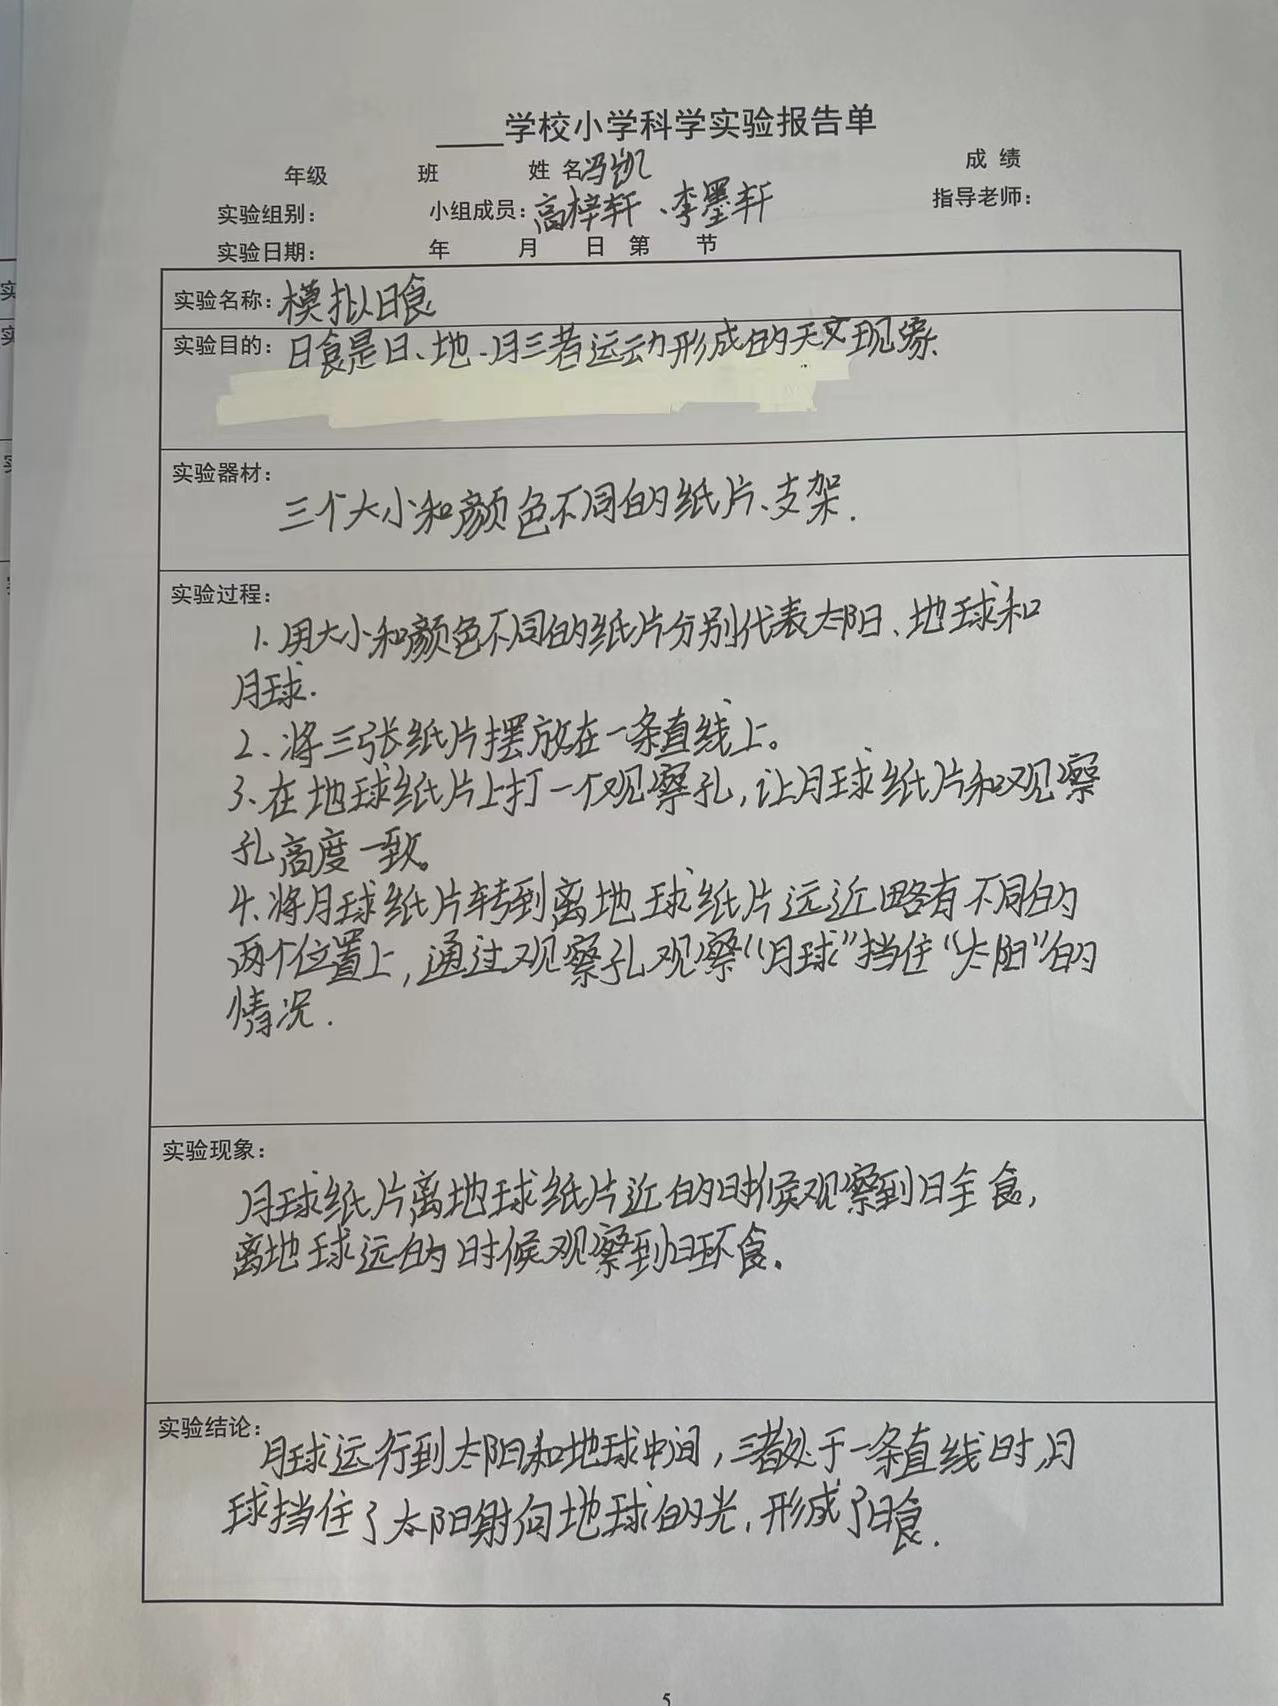 ____学校小学科学实验报告单
年级 班 姓 名冯凯 成 绩
实验组别： 小组成员：高梓轩、李墨轩 指导老师：
实验日期： 年 月 日 第 节
实验名称：模拟日食
实验目的：日食是日、地、月三者运动形成的天文现象.
实验器材：
三个大小和颜色不同的纸片、支架.
实验过程：
1.用大小和颜色不同的纸片分别代表太阳、地球和
月球.
2、将三张纸片摆放在一条直线上。
3、在地球纸片上打一个观察孔,让月球纸片和观察
孔高度一致。
4.将月球纸片转到离地球纸片远近略有不同的
两个位置上,通过观察孔观察“月球”挡住“太阳”的
情况.
实验现象：
月球纸片离地球纸片近的时候观察到日全食,
离地球远的时候观察到日环食.
实验结论：
月球运行到太阳和地球中间,三者处于一条直线时,月
球挡住了太阳射向地球的光,形成了日食.
5